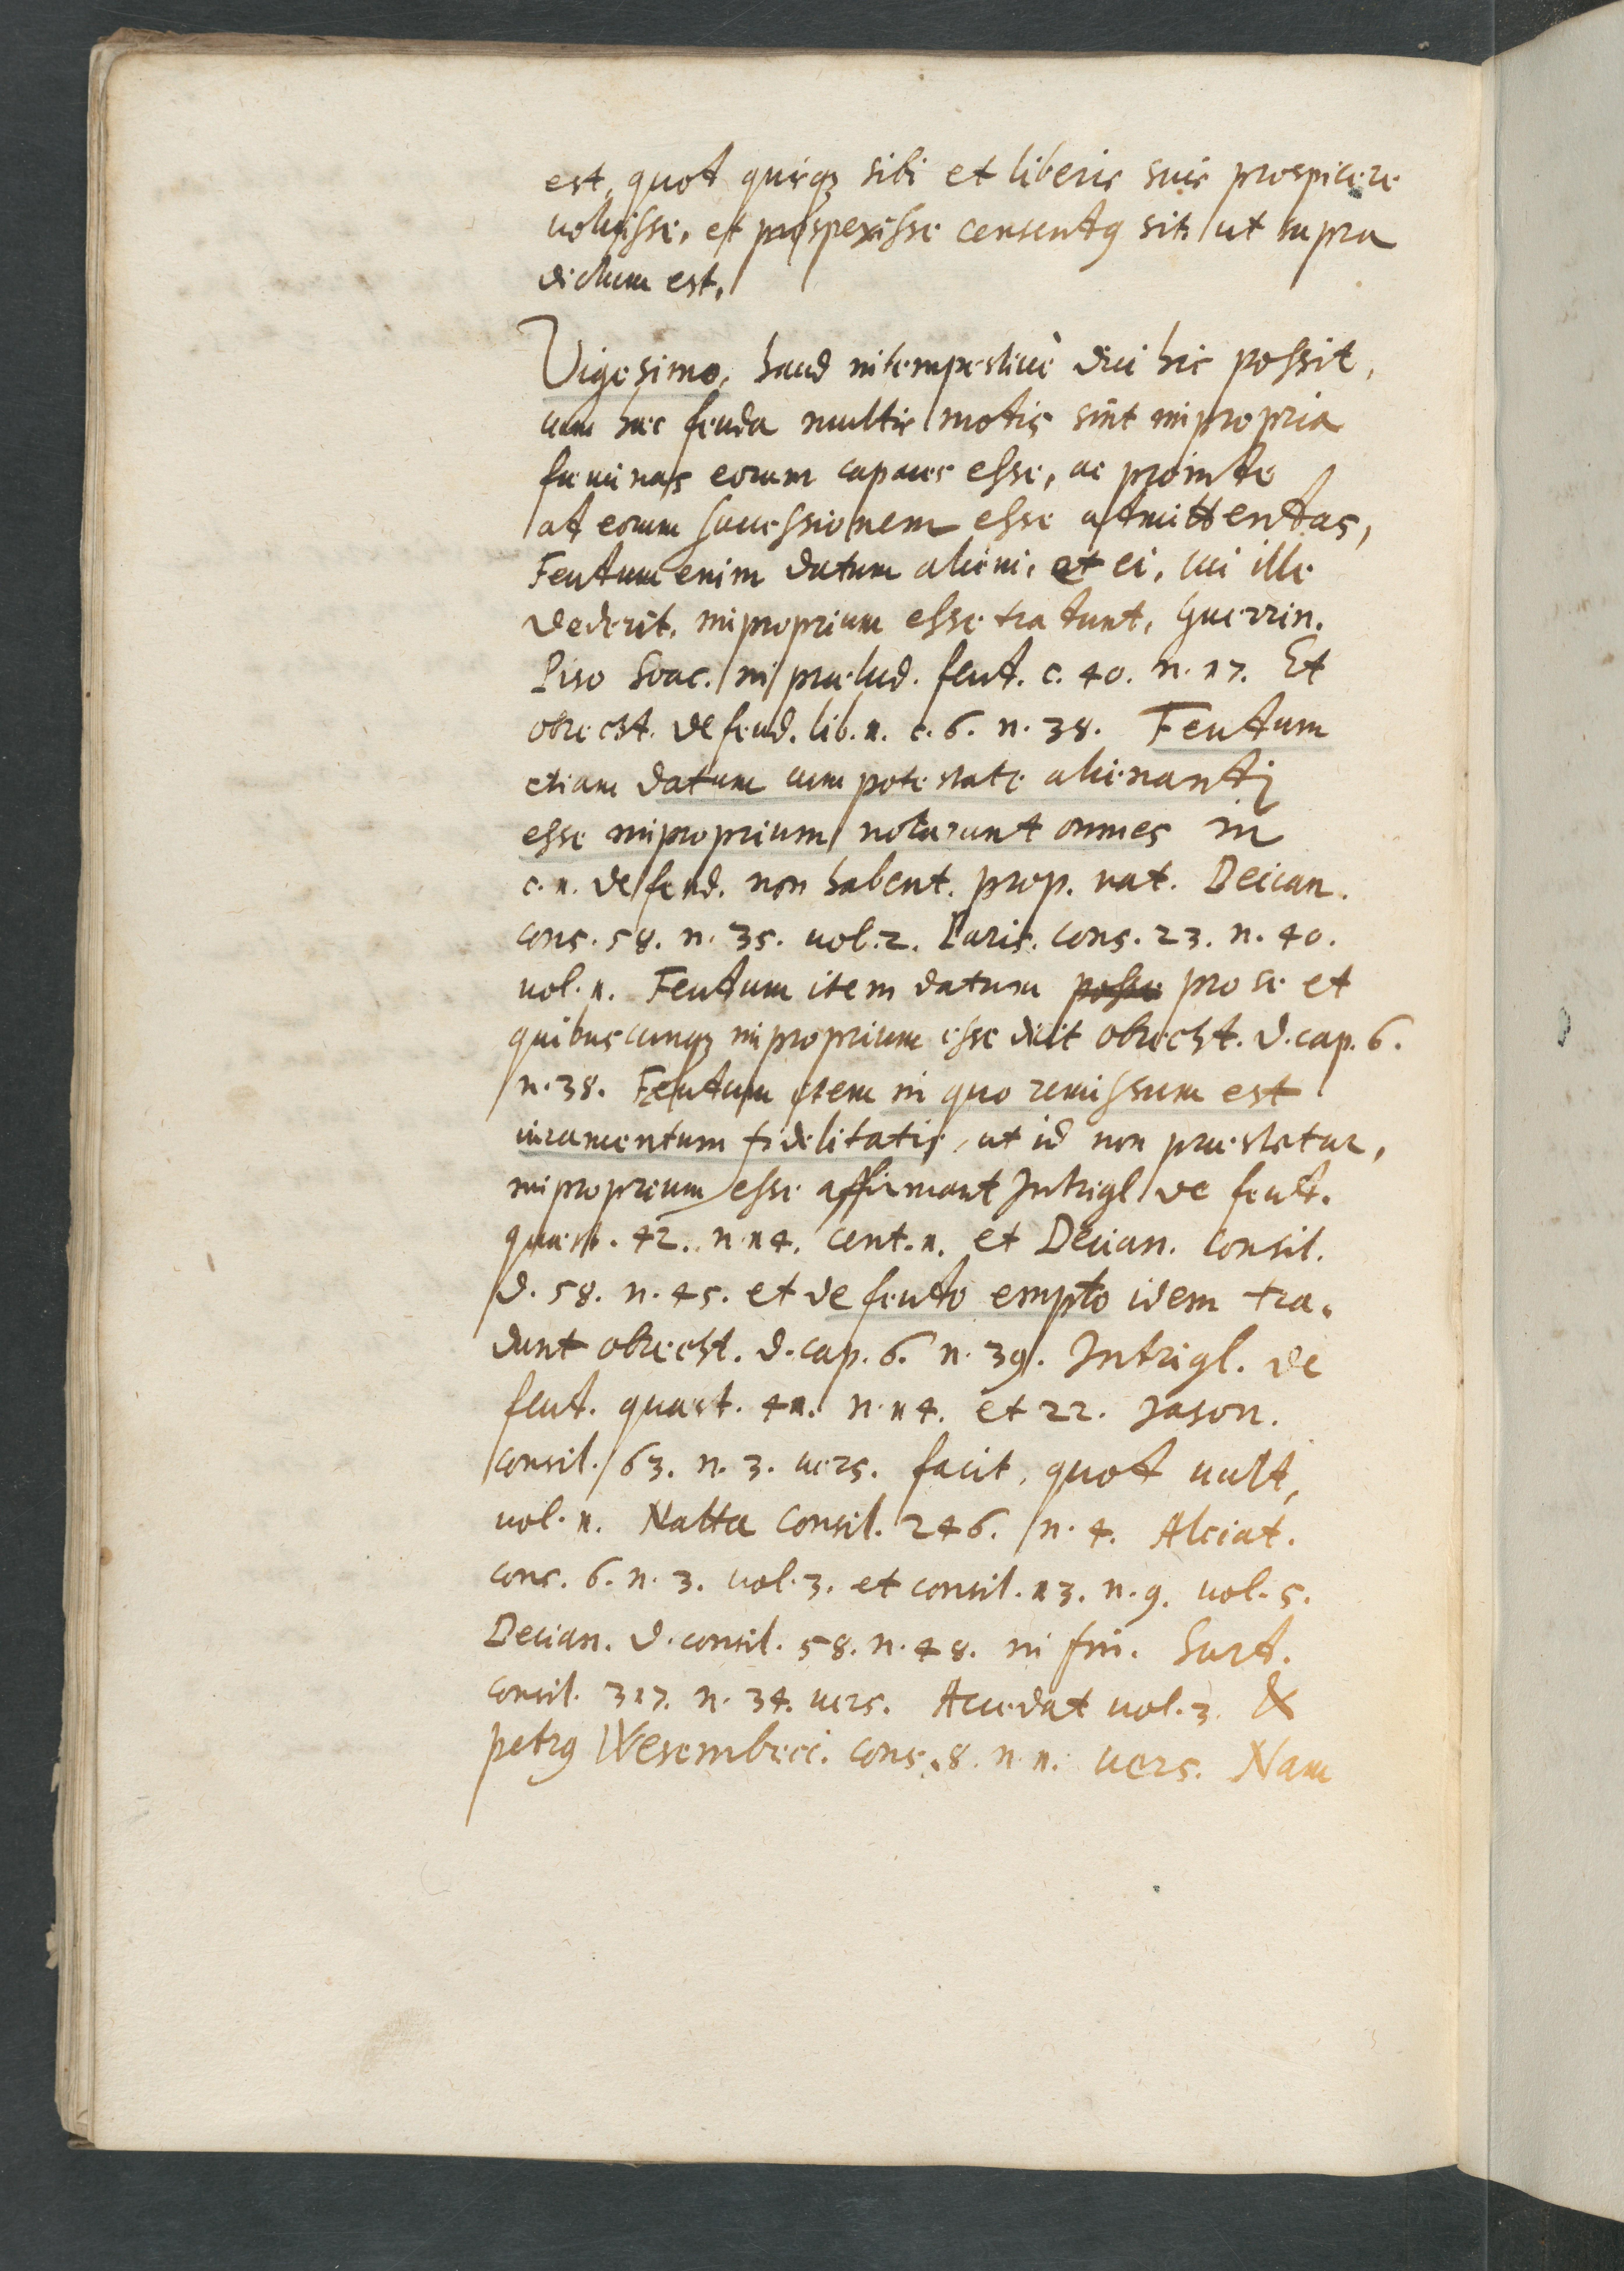 est, quod quisq; sibi et liberis suis prospicere
voluisse, et prospexisse censendus sit, ut supra
dictum est.
Vigesimo, haud intempestivè dici hic possit,
cum haec feuda multis modis sint impropria
feminas eorum capaces esse, ac proinde
ad eorum successionem esse admittendas,
Feudum enim datum alicui, et ei, cui ille
dederit, improprium esse tradunt, Guerrin.
Piso Soac. in praelud. feud. c. 40. n. 17. Et
obrecht. de feud. lib. 1. c. 6. n. 38. Feudum
etiam datum cum potestate alienandi
esse improprium notarunt omnes in
c. 1. de feud. non habent. prop. nat. Decian.
cons. 58. n. 35. vol. 2. Paris. cons. 23. n. 40.
vol. 1. Feudum item datum posse pro se et
quibuscunq; improprium esse dicit obrecht. d. cap. 6.
n. 38. Feudum item in quo remissum est
iuramentum fidelitatis, ut id non praestetur,
improprium esse affirmant Intrigl. de feud.
quaest. 42. n. 14. cent. 1. et Decian. consil.
d. 58. n. 45. et de feudo empto idem tra-
dunt obrecht. d. cap. 6. n. 39. Intrigl. de
feud. quaest. 41. n. 14. et 22. Jason.
consil. 63. n. 3. vers. facit, quod vult,
vol. 1. Natta consil. 246. n. 4. Alciat.
cons. 6. n. 3. vol. 3. et consil. 13. n. 9. vol. 5.
Decian. d. consil. 58. n. 48. in fin. Surd.
consil. 317. n. 34. vers. Accedat vol. 3. &
petrus Wesembeci. cons. 8. n. 1. vers. Nam